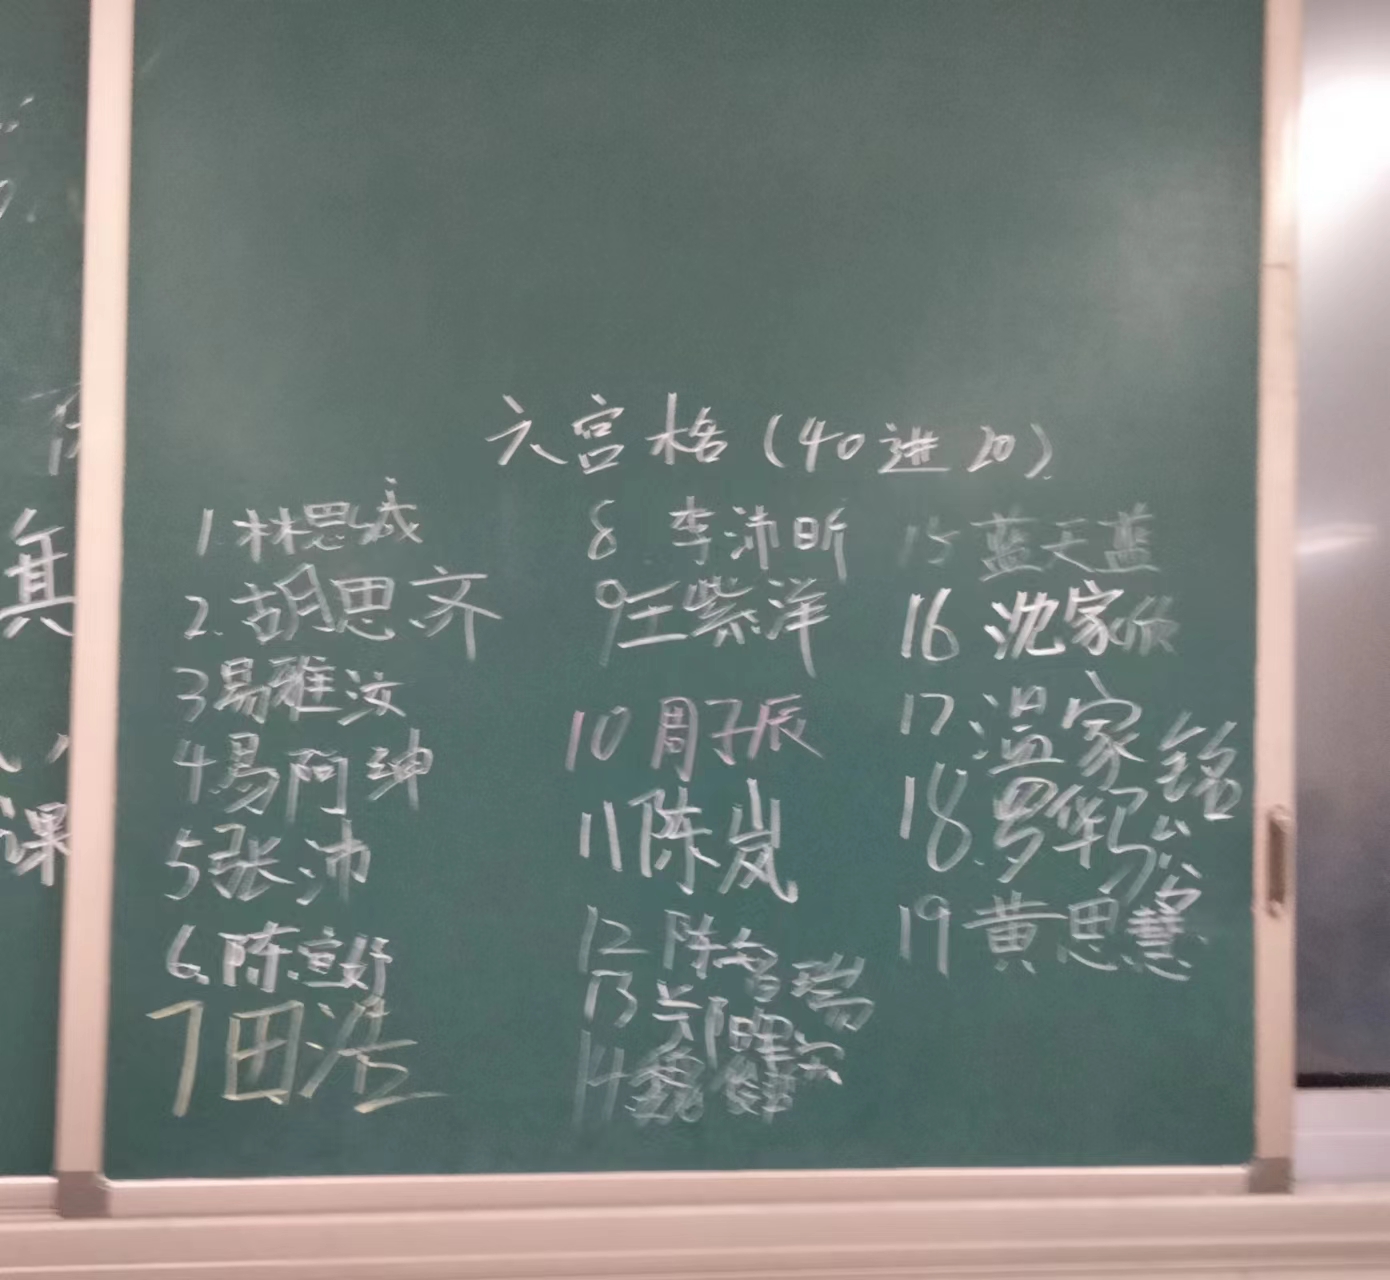 六宫格(40进20)
1 林思成
2. 胡思齐
3 易雅汝
4 易阿绅
5 张沛
6. 陈宣妤
7 田浩
8 李沛昕
9 王紫洋
10 周子辰
11 陈岚
12 陈智瑞
13 郑晖宏
14 魏
15 蓝天蓝
16 沈家欣
17 温家铭
18. 罗华
19 黄思慧
真
课